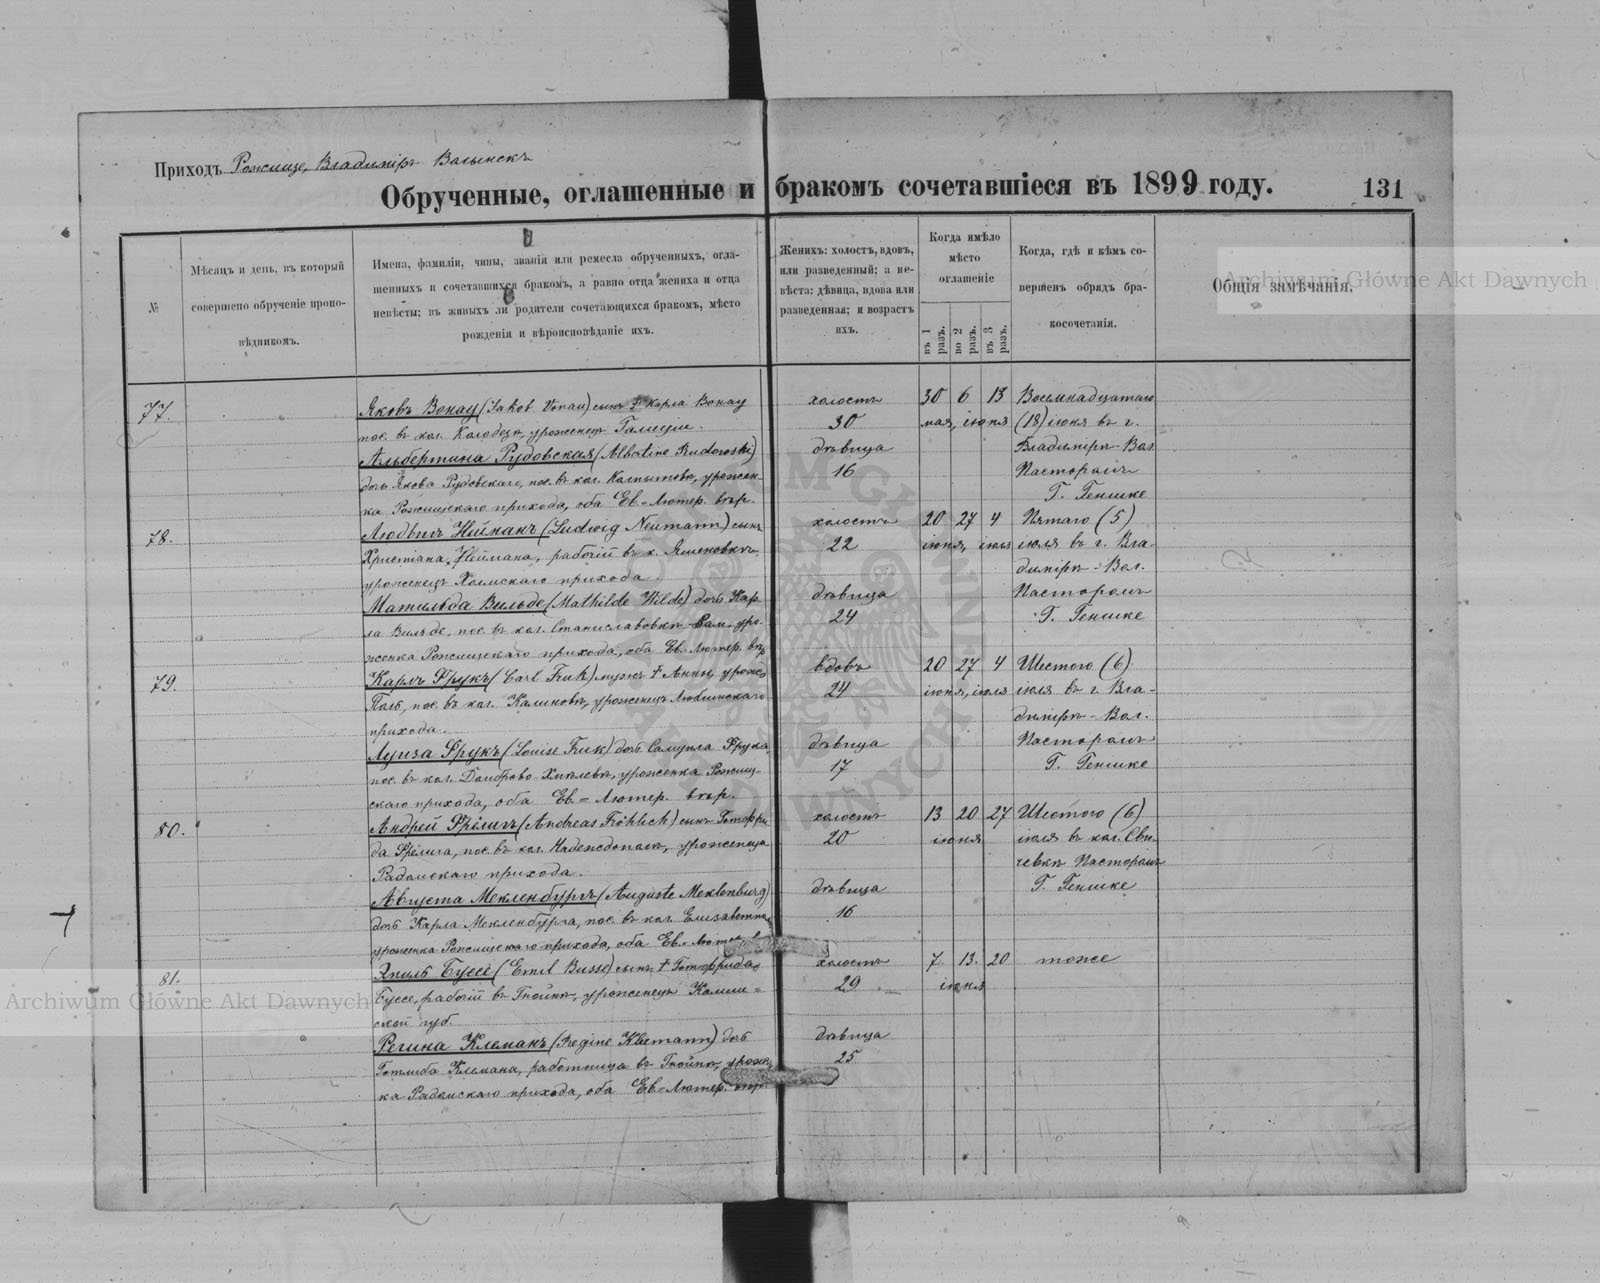 Приходъ Рожище, Владиміръ Волынскъ
Обрученные, оглашенные и бракомъ сочетавшіеся въ 1899 году.
131
№
Мѣсяцъ и день, въ который
совершено обрученіе пропо-
вѣдникомъ.
Имена, фамиліи, чины, званія или ремесла обрученныхъ, огла-
шенныхъ и сочетавшихся бракомъ, а равно отца жениха и отца
невѣсты; въ живыхъ ли родители сочетающихся бракомъ, мѣсто
рожденія и вѣроисповѣданіе ихъ.
Женихъ: холостъ, вдовъ,
или разведенный; а не-
вѣста: дѣвица, вдова или
разведенная; и возрастъ
ихъ.
Когда имѣло
мѣсто
оглашеніе
въ 1 разъ.
во 2 разъ.
въ 3 разъ.
Когда, гдѣ и кѣмъ со-
вершенъ обрядъ бра-
косочетанія.
Общія замѣчанія.
77.
Яковъ Вонау (Jakob Vonau) сынъ † Карла Вонау
пос. въ кол. Колодезь, уроженецъ Галиціи.
Альбертина Рудовская (Albertine Rudowski)
дочь Якова Рудовскаго, пос. въ кол. Копытово, урожен-
ка Рожищскаго прихода, оба Ев.-Лютер. вѣр.
холостъ
30
дѣвица
16
30 6 13
мая, іюня
Восемнадцатаго
(18) іюня въ г.
Владимірѣ-Вол.
Пасторомъ
Г. Генике
78.
Людвигъ Нейманъ (Ludwig Neumann) сынъ
Христіана Неймана, рабочій въ к. Яшеновкѣ,
уроженецъ Холмскаго прихода.
Матильда Вильде (Mathilde Wilde) дочь Кар-
ла Вильде, пос. въ кол. Станиславовкѣ уро-
женка Рожищскаго прихода, оба Ев.-Лютер. вѣр.
холостъ
22
дѣвица
24
20 27 4
іюня, іюля
Пятаго (5)
іюля въ г. Вла-
димірѣ-Вол.
Пасторомъ
Г. Генике
79.
Карлъ Фрукъ (Carl Fruk) мужъ † Анны, урожд.
пос. въ кол. Калиновкѣ, уроженецъ Люблинскаго
прихода.
Луиза Фрукъ (Louise Fruk) дочь Самуила Фрука
пос. въ кол. Домброво-Хмѣлевкѣ, уроженка Рожищ-
скаго прихода, оба Ев.-Лютер. вѣр.
вдовъ
24
дѣвица
17
20 27 4
іюня, іюля
Шестого (6)
іюля въ г. Вла-
димірѣ-Вол.
Пасторомъ
Г. Генике
80.
Андрей Фрёлихъ (Andreas Fröhlich) сынъ Готфри-
да Фрёлиха, пос. въ кол. Надеждополь, уроженецъ
Радомскаго прихода.
Августа Мекленбургъ (Auguste Meklenburg)
дочь Карла Мекленбурга, пос. въ кол.
уроженка Рожищскаго прихода, оба Ев.-Лютер.
холостъ
20
дѣвица
16
13 20 27
іюня
Шестого (6)
іюля въ кол. Сви-
чевкѣ Пасторомъ
Г. Генике
81.
Эмиль Буссе (Emil Busse) сынъ † Готфрида
Буссе, рабочій въ Гнойнѣ, уроженецъ Калиш-
ской губ.
Регина Клеманъ (Regine Kleemann) дочь
Готлиба Клемана, работница въ Гнойнѣ, урожен-
ка Радомскаго прихода, оба Ев.-Лютер. вѣр.
холостъ
29
дѣвица
25
7. 13. 20
іюня
тоже
Archiwum Główne Akt Dawnych
Archiwum Główne Akt Dawnych